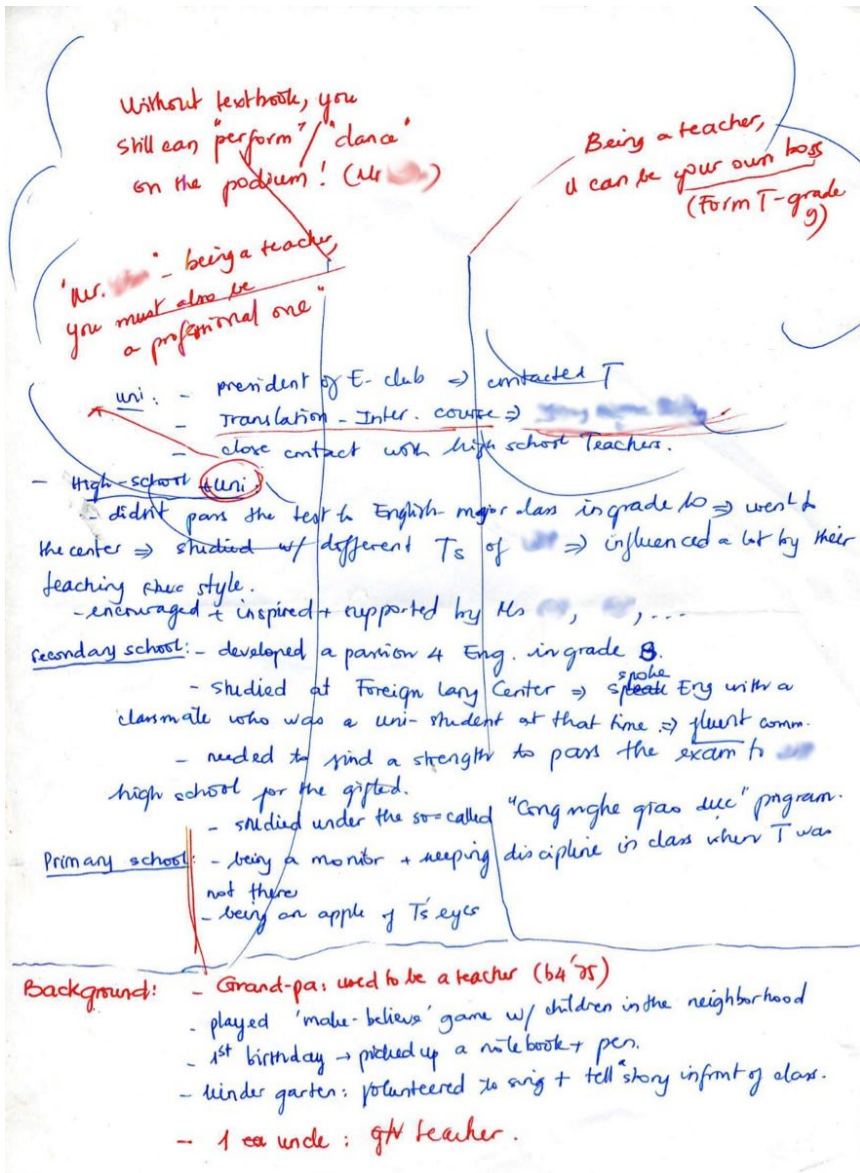 Without textbook, you
still can "perform"/"dance"
on the podium! (Mr
Being a teacher,
u can be your own boss
(Form T-grade
9)
"Mr. " - being a teacher,
you must also be
a professional one"
uni: - president of E-club => contacted T
- Translation - Inter. course =>
- close contact with high school Teachers.
- High-school + uni
- didn't pass the test to English-major class in grade 10 => went to
the center => studied w/ different Ts of => influenced a lot by their
teaching style.
- encouraged + inspired + supported by Ms , , ...
Secondary school: - developed a passion 4 Eng. in grade 8.
- studied at Foreign Lang Center => spoke Eng with a
classmate who was a uni-student at that time => fluent comm.
- needed to find a strength to pass the exam to
high school for the gifted.
- studied under the so-called "Cong nghe giao duc" program.
Primary school: - being a monitor + keeping discipline in class when T was
not there
- being an apple of T's eyes
Background: - Grand-pa: used to be a teacher (b4 '75)
- played 'make-believe' game w/ children in the neighborhood
- 1st birthday → picked up a notebook + pen.
- kinder garten: volunteered to sing + tell story infront of class.
- 1 uncle: teacher.